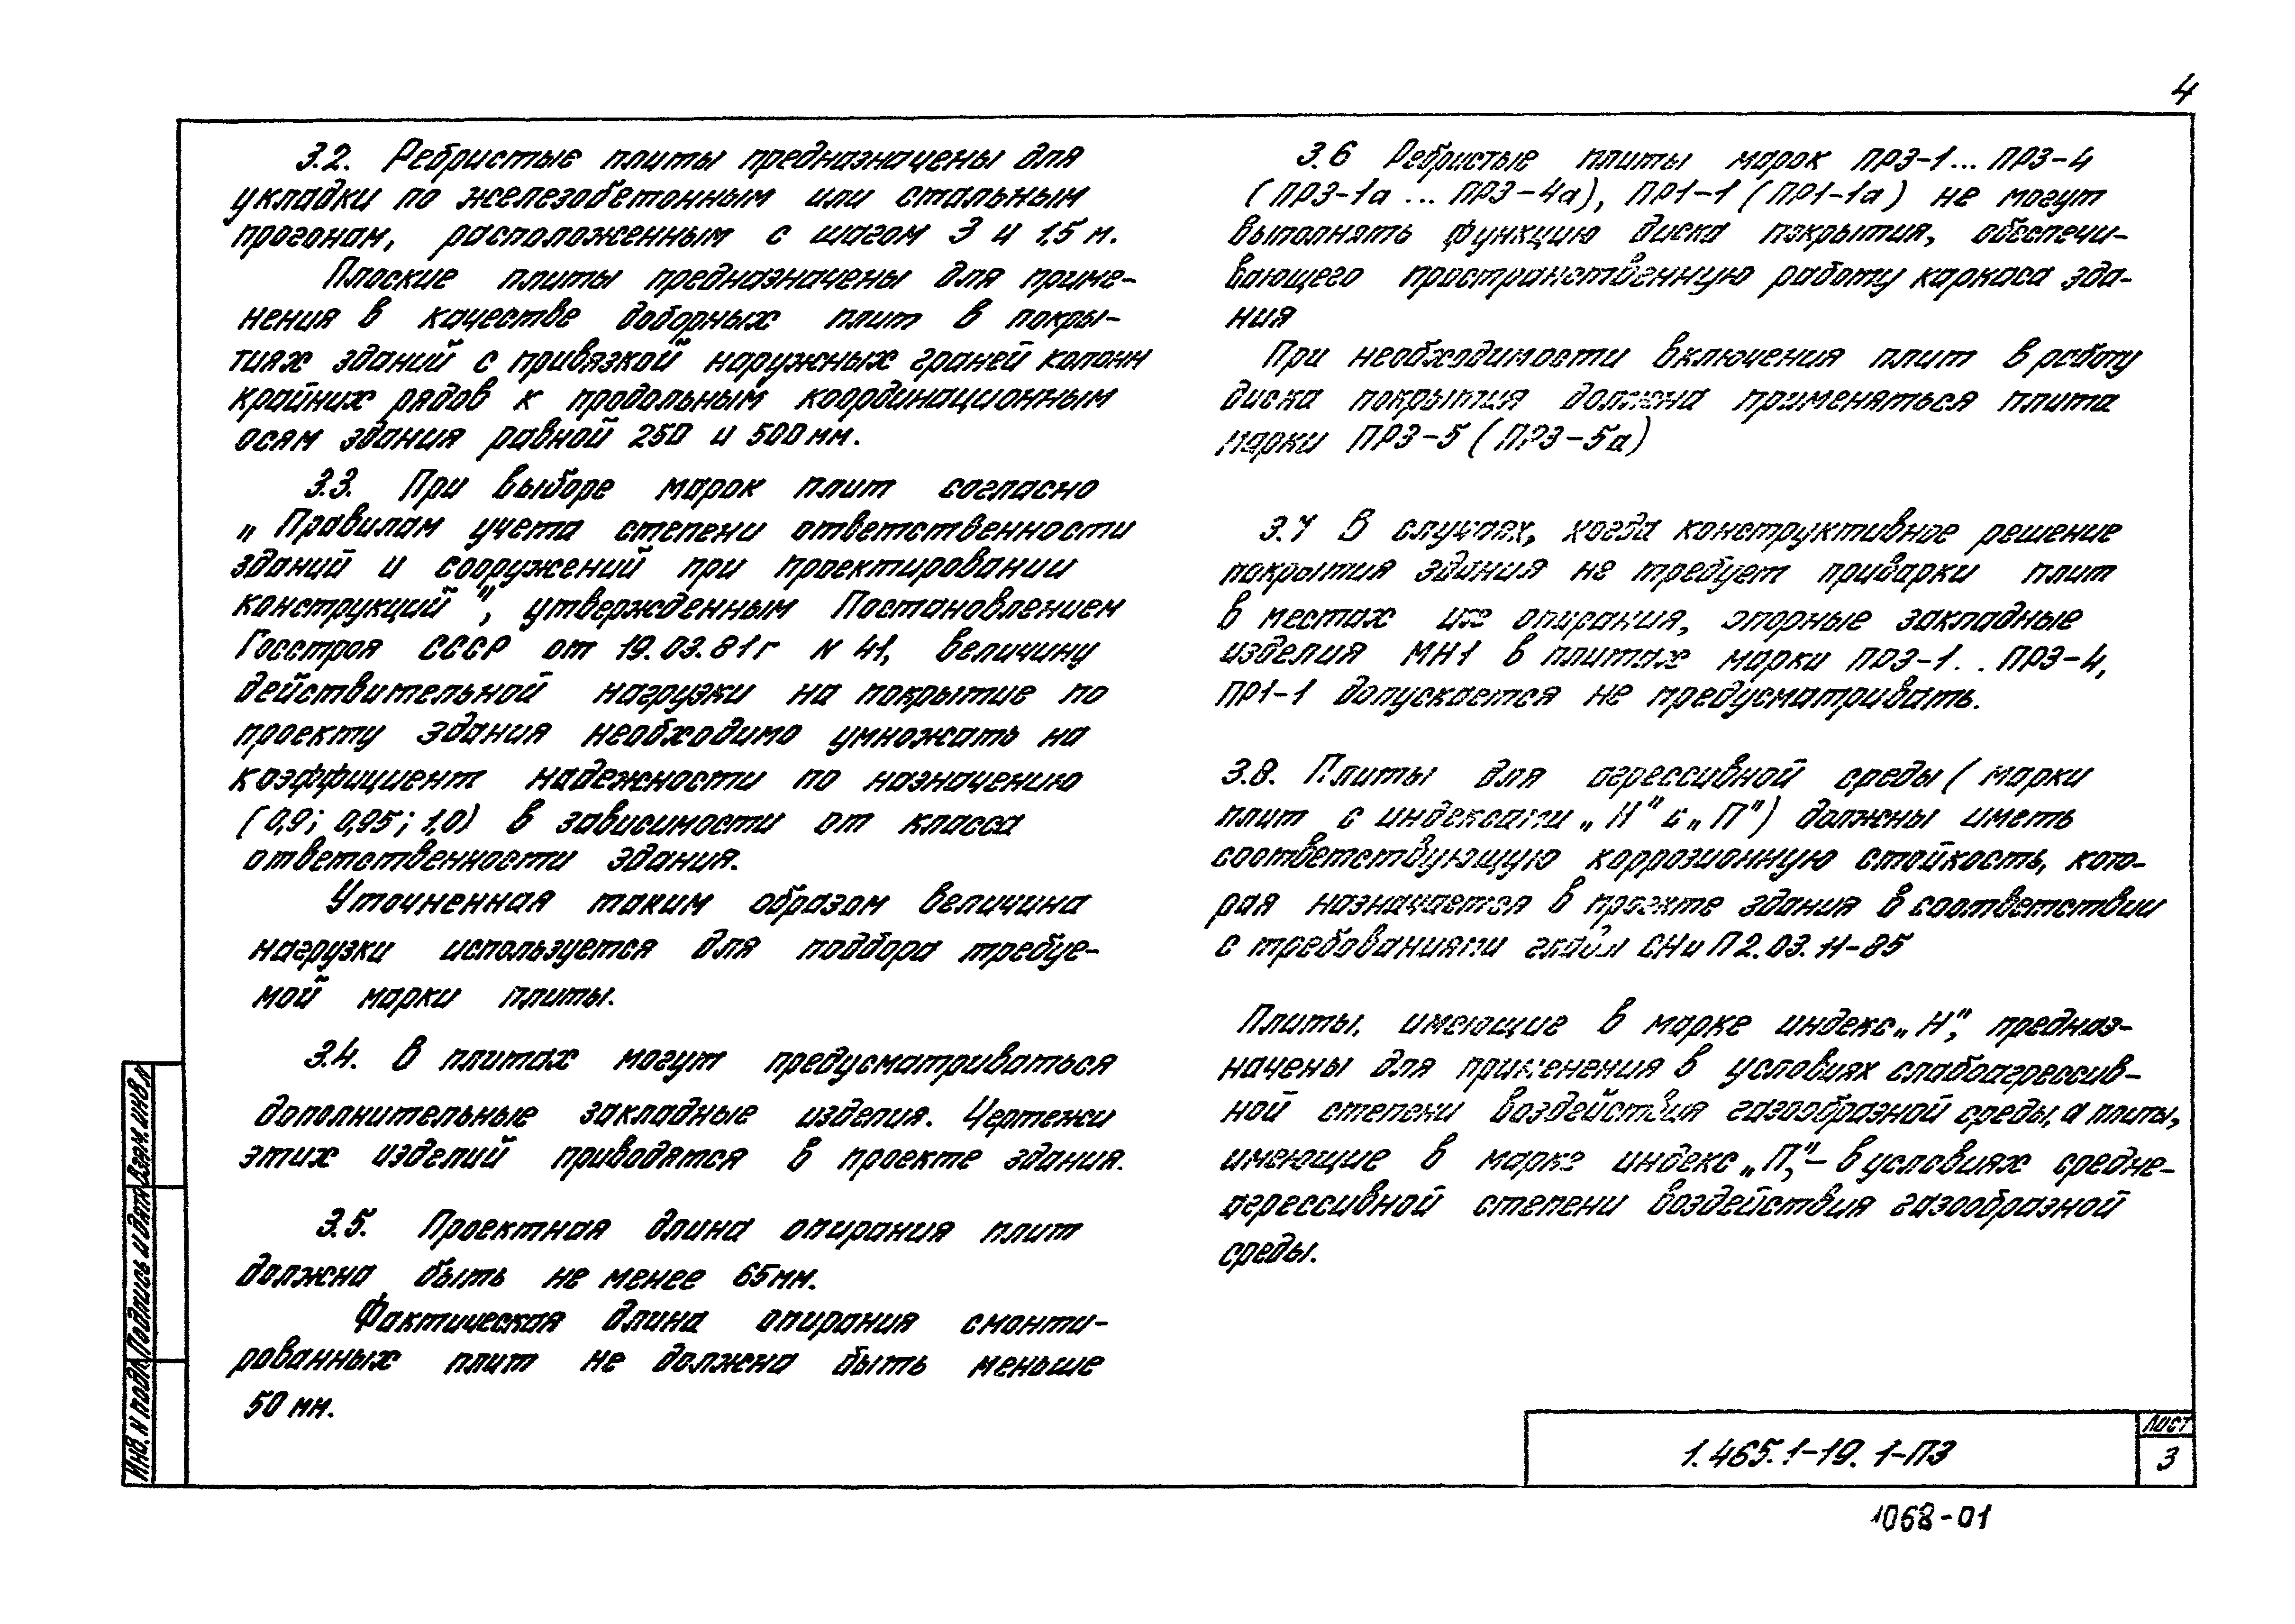 4
3.2. Ребристые плиты предназначены для
укладки по железобетонным или стальным
прогонам, расположенным с шагом 3 и 1,5 м.
Плоские плиты предназначены для приме-
нения в качестве доборных плит в покры-
тиях зданий с привязкой наружных граней колонн
крайних рядов к продольным координационным
осям здания равной 250 и 500 мм.
3.3. При выборе марок плит согласно
„Правилам учета степени ответственности
зданий и сооружений при проектировании
конструкций", утвержденным Постановлением
Госстроя СССР от 19.03.81г N 41, величину
действительной нагрузки на покрытие по
проекту здания необходимо умножать на
коэффициент надежности по назначению
(0,9; 0,95; 1,0) в зависимости от класса
ответственности здания.
Уточненная таким образом величина
нагрузки используется для подбора требуе-
мой марки плиты.
3.4. В плитах могут предусматриваться
дополнительные закладные изделия. Чертежи
этих изделий приводятся в проекте здания.
3.5. Проектная длина опирания плит
должна быть не менее 65мм.
Фактическая длина опирания смонти-
рованных плит не должна быть меньше
50 мм.
3.6 Ребристые плиты марок ПР3-1... ПР3-4
(ПР3-1а ... ПР3-4а), ПР1-1 (ПР1-1а) не могут
выполнять функцию диска покрытия, обеспечи-
вающего пространственную работу каркаса зда-
ния
При необходимости включения плит в работу
диска покрытия должна применяться плита
марки ПР3-5 (ПР3-5а)
3.7 В случаях, когда конструктивное решение
покрытия здания не требует приварки плит
в местах их опирания, опорные закладные
изделия МН1 в плитах марки ПР3-1. . ПР3-4,
ПР1-1 допускается не предусматривать.
3.8. Плиты для агрессивной среды (марки
плит с индексами „Н" и „П") должны иметь
соответствующую коррозионную стойкость, кото-
рая назначается в проекте здания в соответствии
с требованиями главы СНиП 2.03.11-85
Плиты, имеющие в марке индекс „Н", предназ-
начены для применения в условиях слабоагрессив-
ной степени воздействия газообразной среды, а плиты,
имеющие в марке индекс „П",- в условиях средне-
агрессивной степени воздействия газообразной
среды.
Взам. инв. N
Подпись и дата
Инв. N подл.
1.465.1-19. 1-ПЗ
Лист
3
1068-01